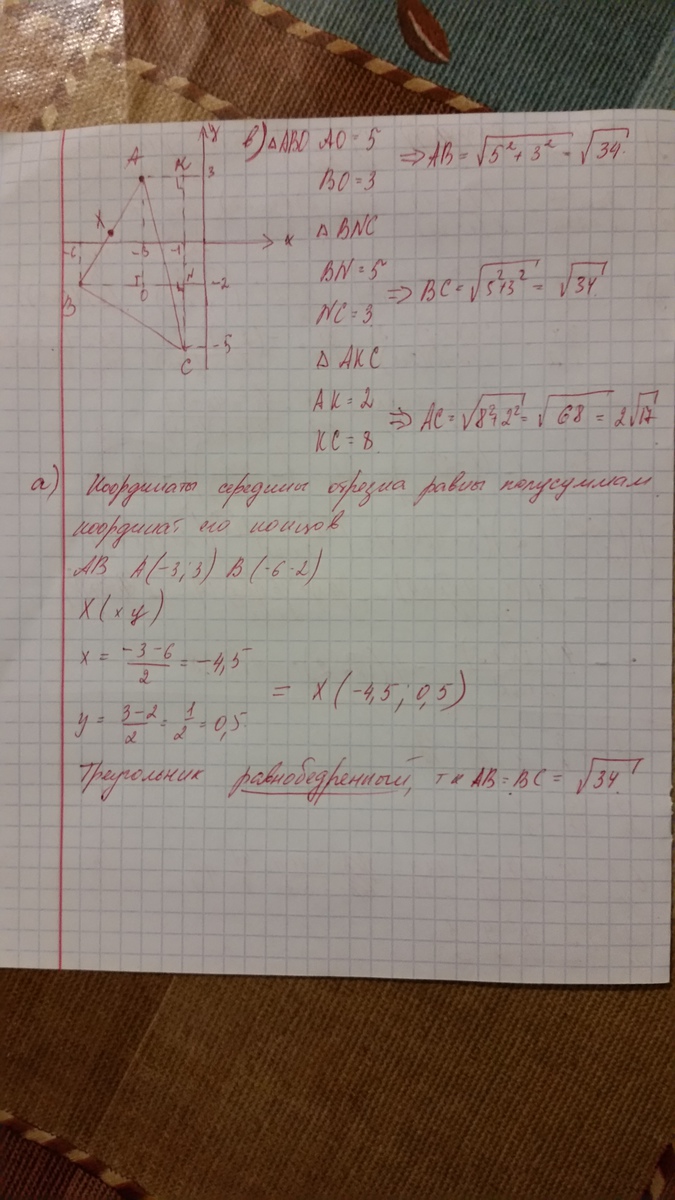 y
A
K
3
X
-6
-3
-1
x
B
O
N
-2
C
-5
в) △ABO AO = 5
BO = 3
⇒ AB = √5² + 3² = √34
△ BNC
BN = 5
NC = 3
⇒ BC = √5²+3² = √34
△ AKC
AK = 2
KC = 8
⇒ AC = √8²+2² = √68 = 2√17
а) Координаты середины отрезка равны полусуммам
координат его концов
AB A(-3; 3) B(-6 -2)
X (x y)
x = -3-6/2 = -4,5
y = 3-2/2 = 1/2 = 0,5
= X (-4,5; 0,5)
Треугольник равнобедренный, т к AB = BC = √34